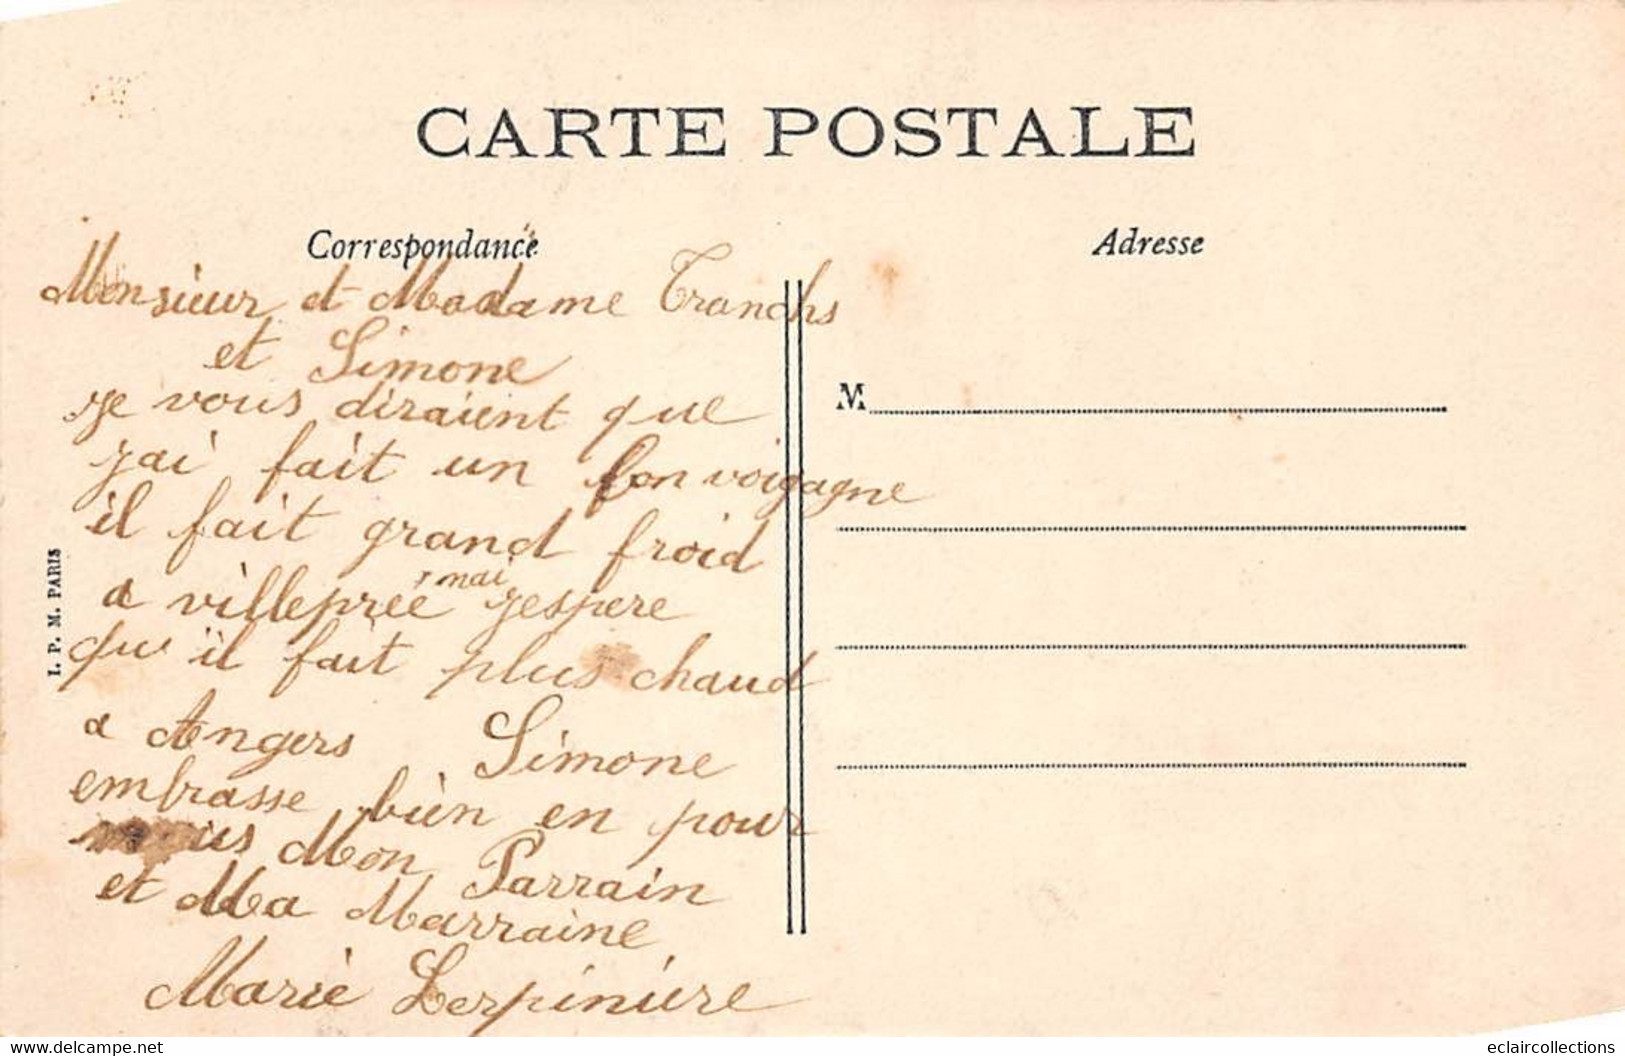 CARTE POSTALE
Correspondance
Adresse
Monsieur et Madame Tranchs
et Simone
je vous diraient que
j'ai fait un bon voigagne
il fait grand froid
a villeprée mai jespere
qu'il fait plus chaud
a Angers Simone
embrasse bien en pour
Mon Parrain
et Ma Marraine
Marie Lerpiniere
M
I. P. M. PARIS
www.delcampe.net
eclaircollections